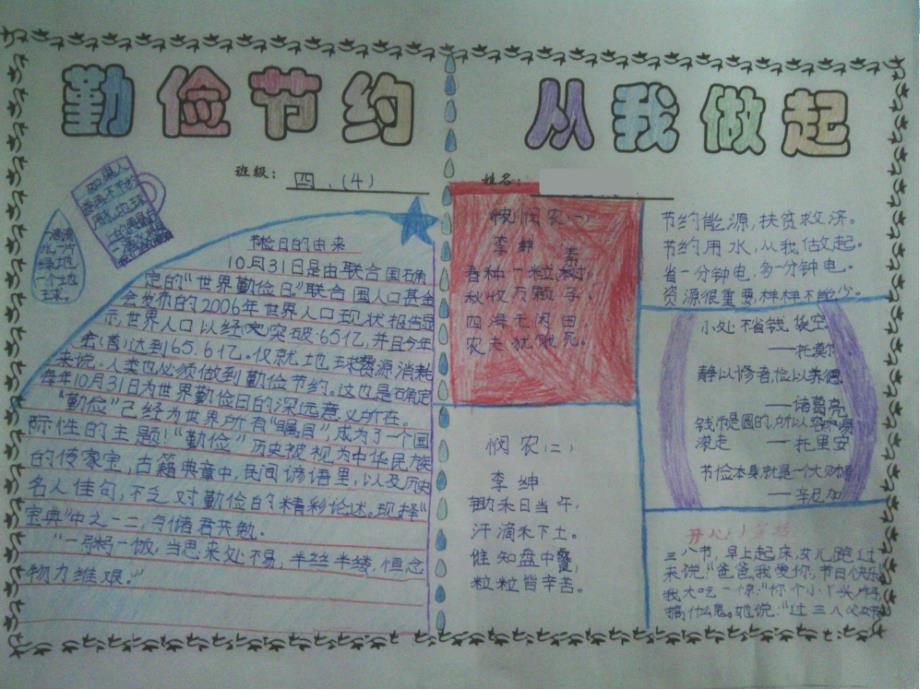 勤俭节约 从我做起
班级：四.(4) 姓名：
滴滴
水一方
绿地
一个地
球。
节俭日的由来
10月31日是由联合国确
定的“世界勤俭日”联合国人口基金
会发布的2006年世界人口现状报告显
示，世界人口以经突破65亿，并且今年
达到65.6亿。仅就地球资源消耗
来说，人类也必须做到勤俭节约。这也是确定
每年10月31日为世界勤俭日的深远意义所在。
“勤俭”已经为世界所有“瞩目”，成为了一个国
际性的主题！“勤俭”历史被视为中华民族
的传家宝，古籍典章中，民间谚语里，以及历史
名人佳句，不乏对勤俭的精彩论述。现择“
宝典”中之一二，与诸君共勉。
“一粥一饭，当思来处不易，半丝半缕，恒念
物力维艰。”
悯农(一)
李绅
春种一粒粟
秋收万颗子，
四海无闲田，
农夫犹饿死。
悯农(二)
李绅
锄禾日当午，
汗滴禾下土。
谁知盘中餐，
粒粒皆辛苦。
节约能源，扶贫救济。
节约用水，从我做起。
省一分钟电，多一分钟电。
资源很重要，样样不能少。
小处不省钱袋空
——托莫尔
静以修者，俭以养德
——诸葛亮
钱币是圆的，所以容
滚走 ——托里安
节俭本身就是一个大财
——辛尼加
三八节，早上起床，女儿跑过
来说：“爸爸，我爱你，节日快乐
我大吃一惊：“你个小丫头片
搞什么鬼。她说：“过三八